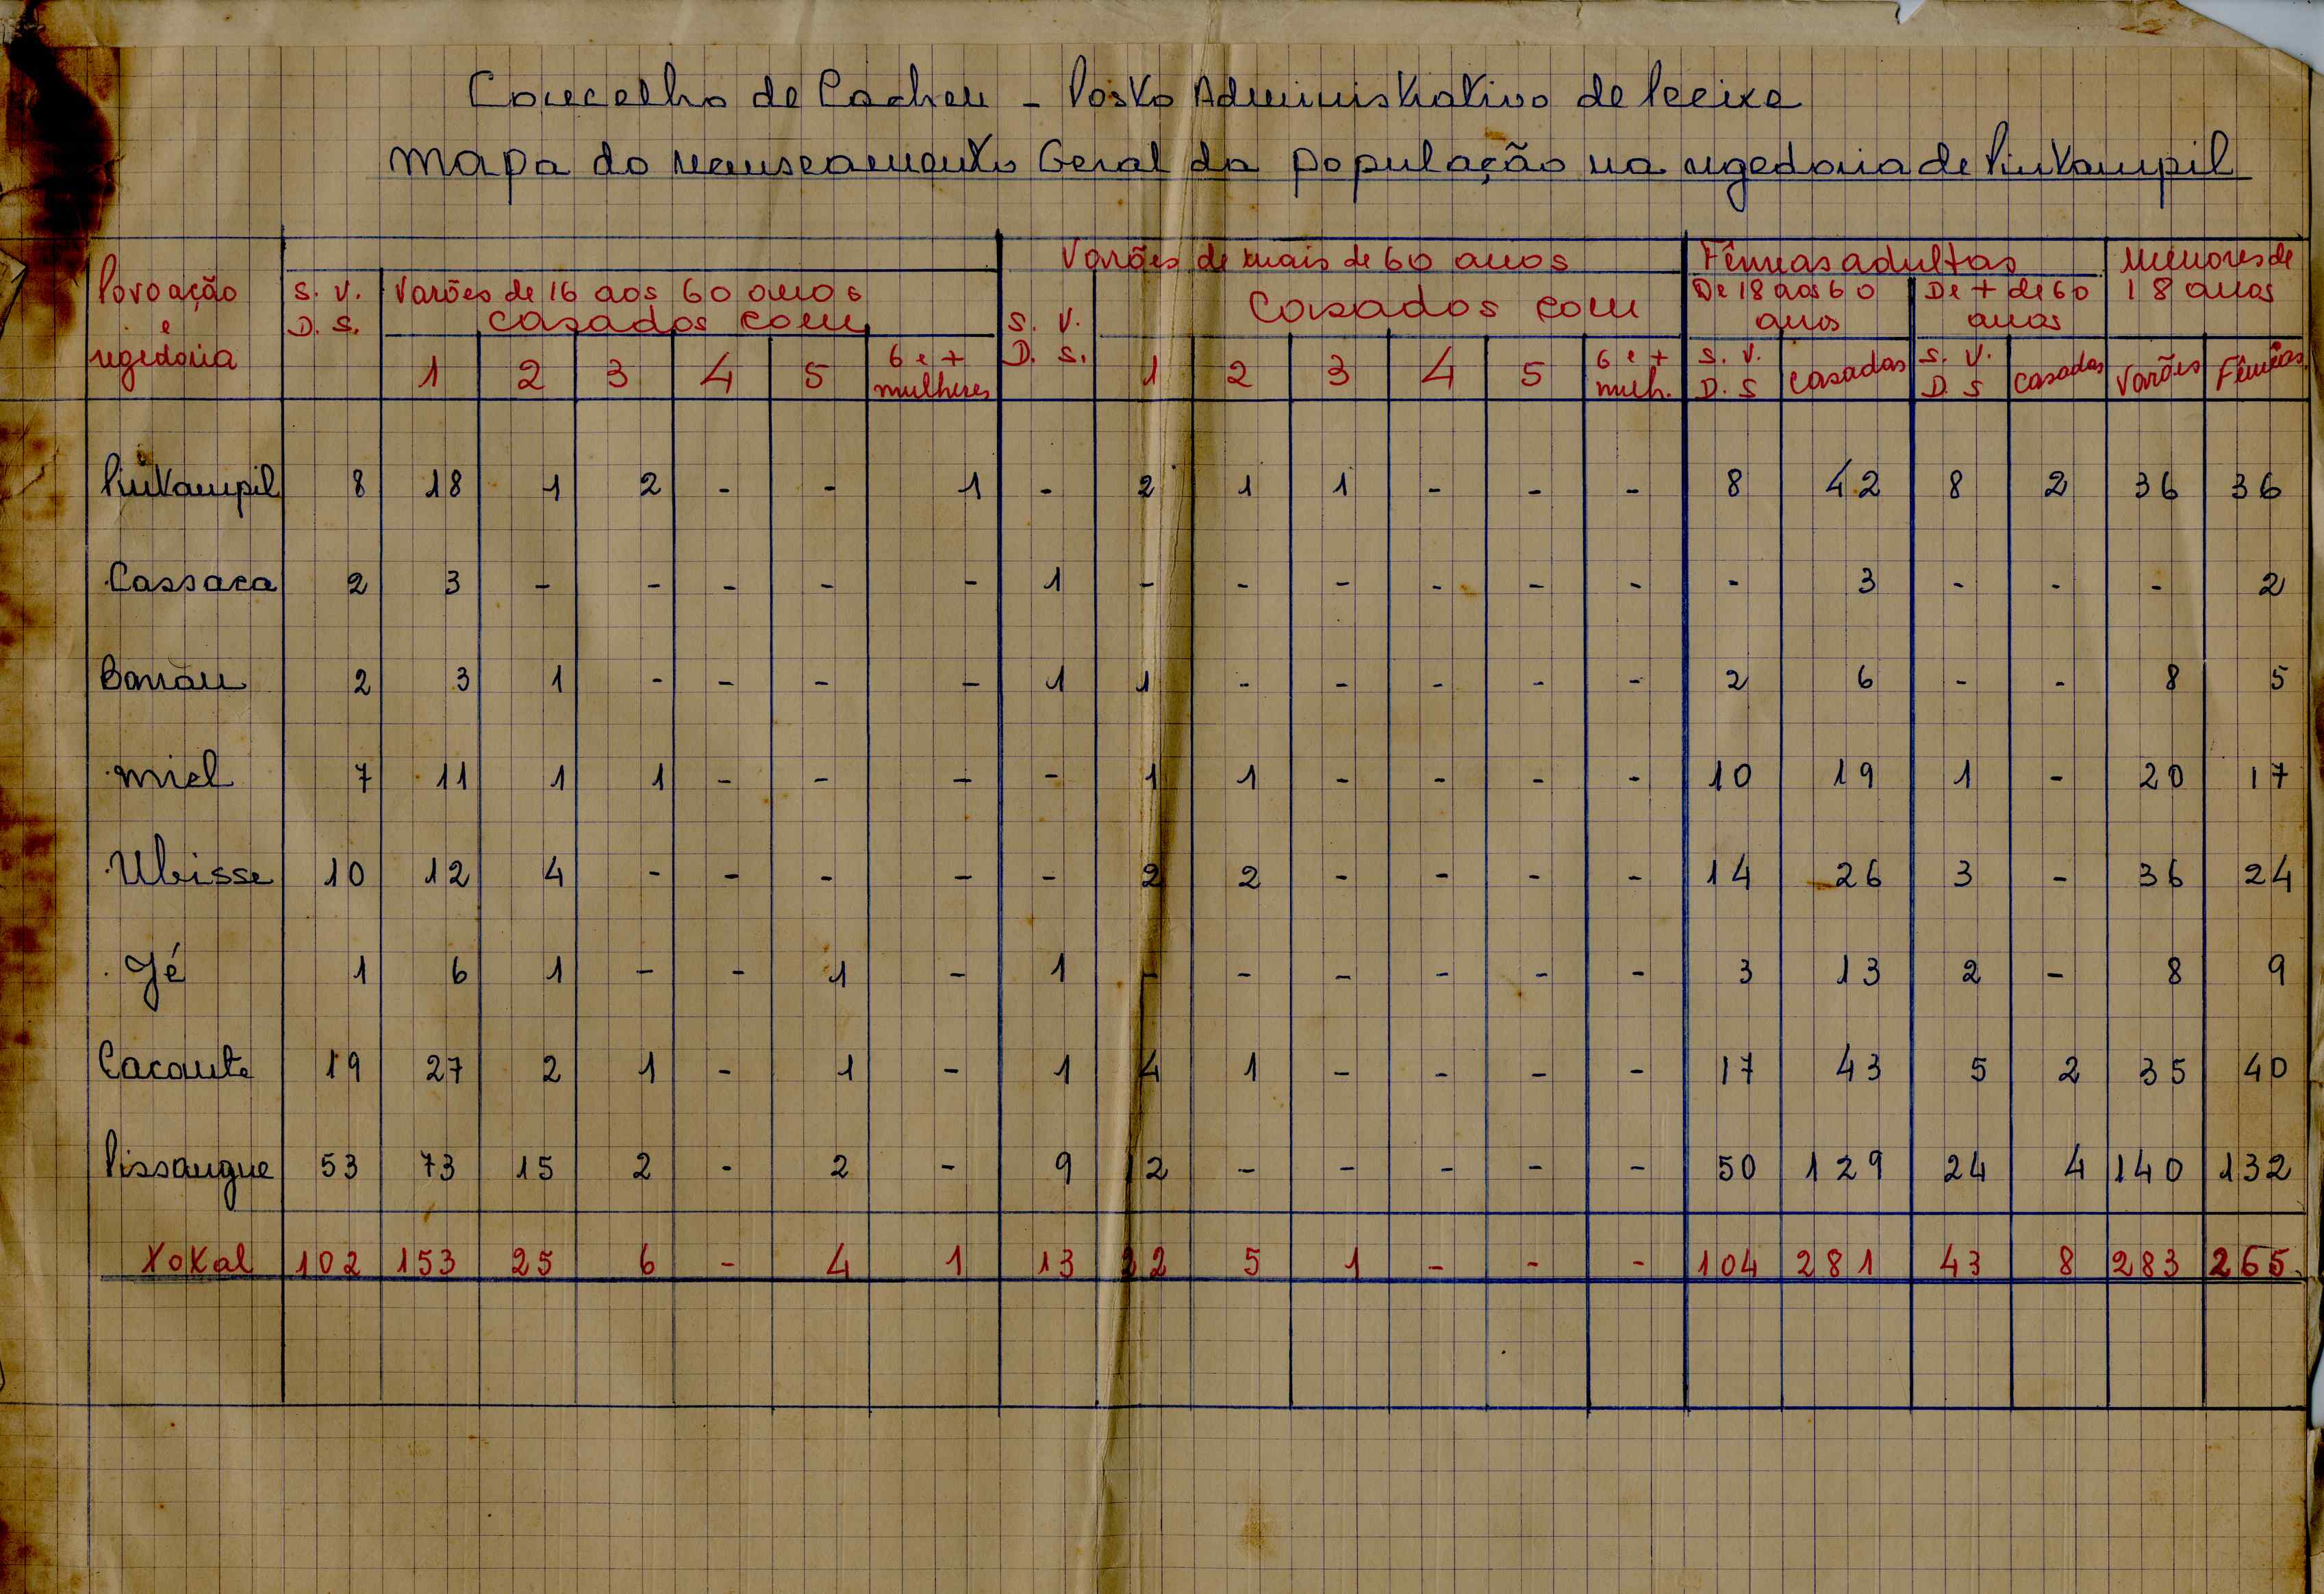 Concelho de Cacheu - Posto Administrativo de Pecixe
Mapa do recenseamento Geral da população na regedoria de Pintampil
Povoação e regedoria
S. V. D. S.
Varões de 16 aos 60 anos casados com
1 2 3 4 5 6 e + mulheres
Varões de mais de 60 anos
S. V. D. S.
Casados com
1 2 3 4 5 6 e + mulh.
Fêmeas adultas
De 18 aos 60 anos
S. V. D. S casadas
De + de 60 anos
S. V. D. S casadas
Menores de 18 anos
Varões Fêmeas
Pintampil 8 18 1 2 - - 1 - 2 1 1 - - - 8 42 8 2 36 36
Cassaca 2 3 - - - - - 1 - - - - - - - 3 - - - 2
Barrau 2 3 1 - - - - 1 1 - - - - - 2 6 - - 8 5
Miel 7 11 1 1 - - - - 1 1 - - - - 10 19 1 - 20 17
Ubisse 10 12 4 - - - - - 2 2 - - - - 14 26 3 - 36 24
Jé 1 6 1 - - 1 - 1 - - - - - - 3 13 2 - 8 9
Cacante 19 27 2 1 - 1 - 1 4 1 - - - - 17 43 5 2 35 40
Pissangue 53 73 15 2 - 2 - 9 12 - - - - - 50 129 24 4 140 132
Total 102 153 25 6 - 4 1 13 22 5 1 - - - 104 281 43 8 283 265